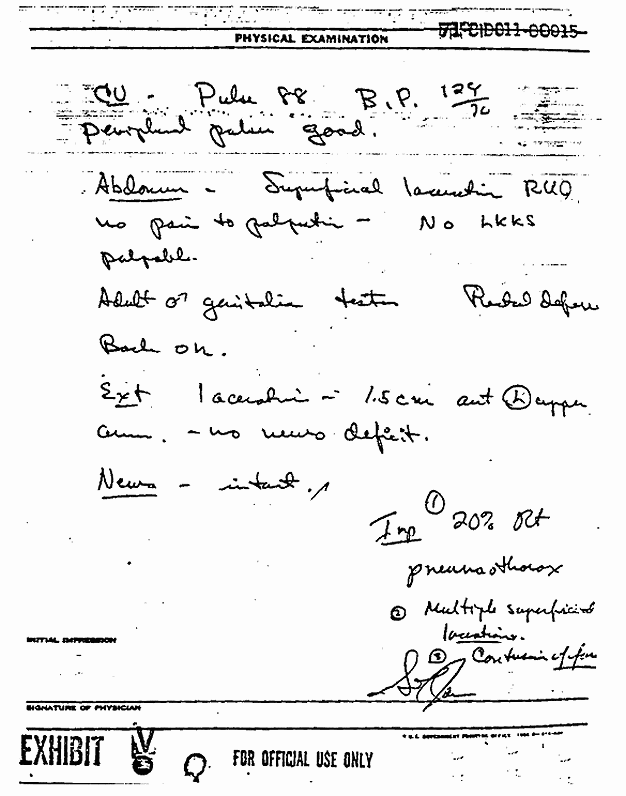 PHYSICAL EXAMINATION
CV - Pulse 88 B.P. 124/70
peripheral pulses good.
Abdomen - Superficial laceration RUQ
no pain to palpation - No LKKS
palpable.
Adult ♂ genitalia testes Rectal defer
Back OK.
Ext laceration - 1.5 cm ant (L) upper
arm. - no neuro deficit.
Neuro - intact.
Imp ① 20% Rt
pneumothorax
② Multiple superficial
lacerations.
INITIAL IMPRESSION
③ Contusion of
SIGNATURE OF PHYSICIAN
U.S. GOVERNMENT PRINTING OFFICE
EXHIBIT
FOR OFFICIAL USE ONLY